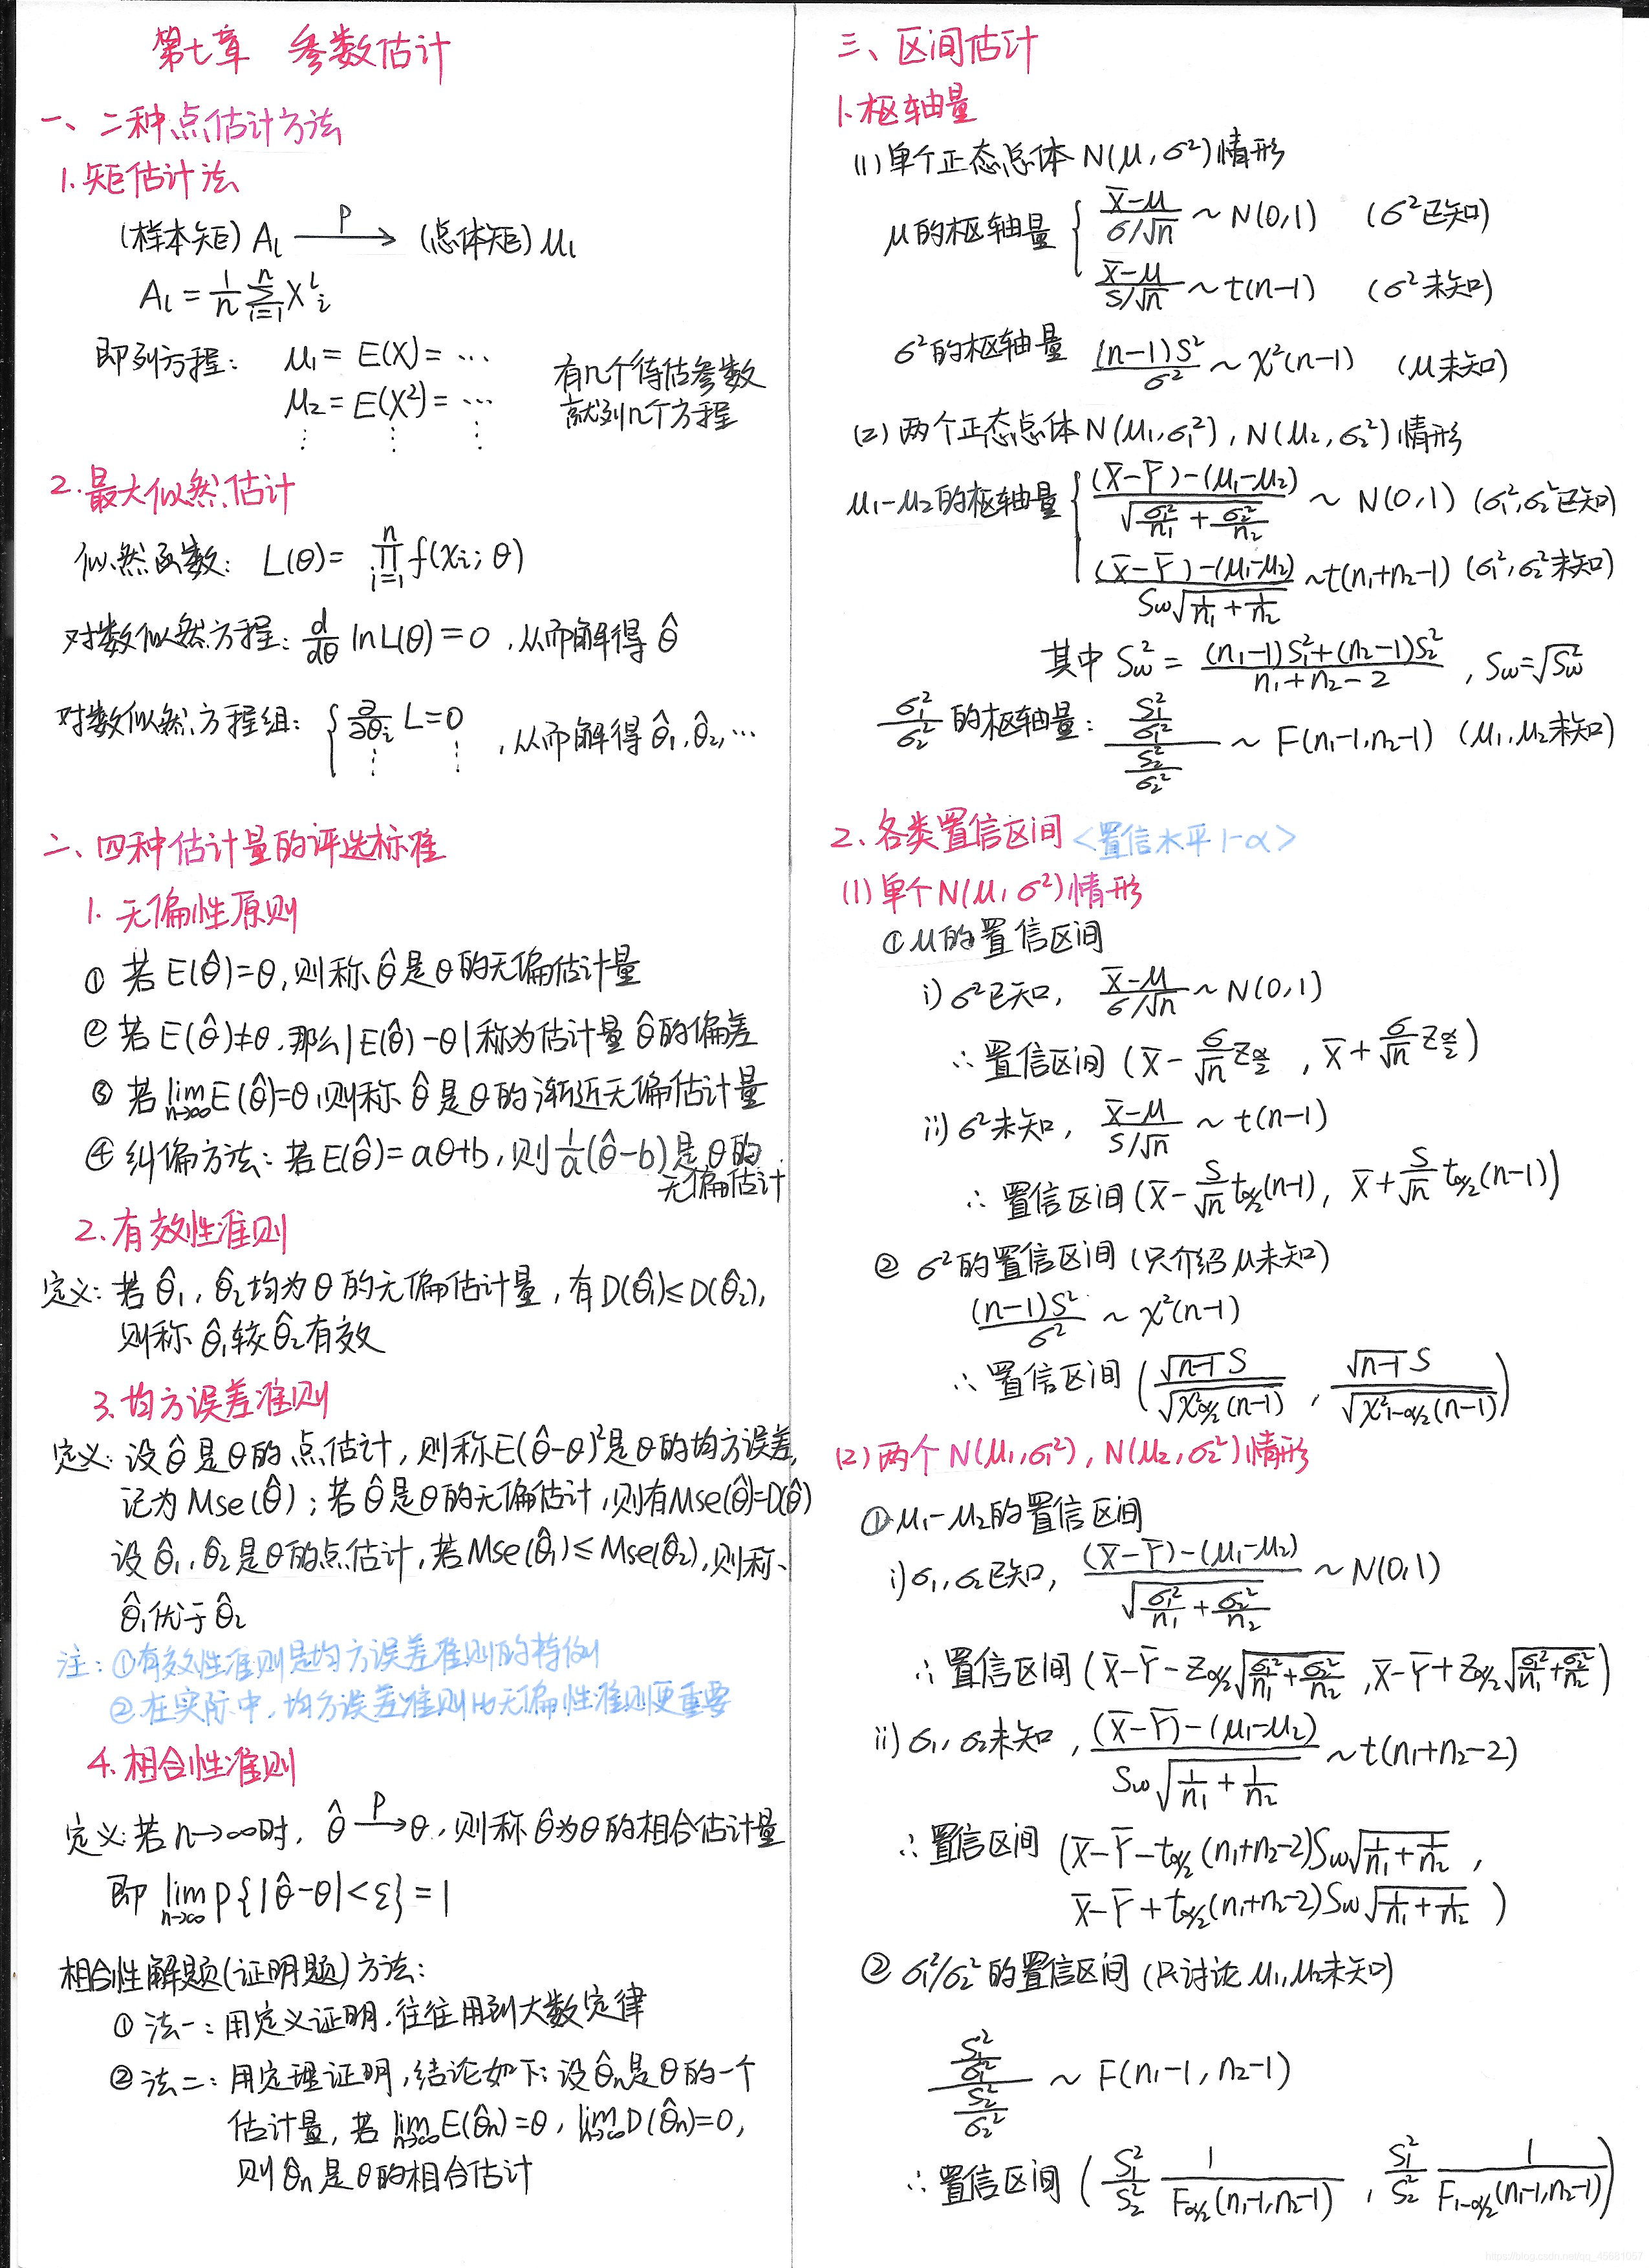 第七章 参数估计
一、二种点估计方法
1.矩估计法
(样本矩) A_l —P→ (总体矩) μ_l
A_l = 1/n ∑_{i=1}^{n} X_i^l
即列方程: μ₁ = E(X) = ⋯ 有几个待估参数
μ₂ = E(X²) = ⋯ 就列几个方程
⋮ ⋮ ⋮
2.最大似然估计
似然函数: L(θ) = ∏_{i=1}^{n} f(x_i; θ)
对数似然方程: d/dθ lnL(θ) = 0 ,从而解得 θ̂
对数似然方程组: { ∂/∂θ_i L = 0 ,从而解得 θ̂₁, θ̂₂, ⋯
⋮ ⋮
二、四种估计量的评选标准
1. 无偏性原则
① 若 E(θ̂)=θ,则称 θ̂ 是 θ 的无偏估计量
② 若 E(θ̂)≠θ,那么|E(θ̂)-θ|称为估计量 θ̂ 的偏差
③ 若 lim_{n→∞} E(θ̂)=θ,则称 θ̂ 是 θ 的渐近无偏估计量
④ 纠偏方法: 若 E(θ̂)=aθ+b, 则 1/a(θ̂-b) 是 θ 的
无偏估计
2.有效性准则
定义: 若 θ̂₁, θ̂₂ 均为 θ 的无偏估计量, 有 D(θ̂₁)≤D(θ̂₂),
则称 θ̂₁ 较 θ̂₂ 有效
3.均方误差准则
定义: 设 θ̂ 是 θ 的点估计, 则称 E(θ̂-θ)² 是 θ 的均方误差,
记为 Mse(θ̂); 若 θ̂ 是 θ 的无偏估计,则有 Mse(θ̂)=D(θ̂)
设 θ̂₁, θ̂₂ 是 θ 的点估计, 若 Mse(θ̂₁)≤Mse(θ̂₂), 则称
θ̂₁ 优于 θ̂₂
注: ①有效性准则是均方误差准则的特例
②在实际中, 均方误差准则比无偏性准则更重要
4.相合性准则
定义: 若 n→∞时, θ̂ —P→ θ, 则称 θ̂ 为 θ 的相合估计量
即 lim_{n→∞} P{|θ̂-θ|<ε} = 1
相合性解题(证明题)方法:
① 法一: 用定义证明,往往用到大数定律
② 法二: 用定理证明,结论如下: 设 θ̂n 是 θ 的一个
估计量, 若 lim_{n→∞} E(θ̂n)=θ, lim_{n→∞} D(θ̂n)=0,
则 θ̂n 是 θ 的相合估计
三、区间估计
1.枢轴量
(1) 单个正态总体 N(μ, σ²) 情形
μ的枢轴量 { (X̄-μ)/(σ/√n) ~ N(0,1) (σ²已知)
(X̄-μ)/(S/√n) ~ t(n-1) (σ²未知)
σ²的枢轴量 (n-1)S²/σ² ~ χ²(n-1) (μ未知)
(2) 两个正态总体 N(μ₁,σ₁²), N(μ₂,σ₂²) 情形
μ₁-μ₂的枢轴量 { ((X̄-Ȳ)-(μ₁-μ₂))/√(σ₁²/n₁ + σ₂²/n₂) ~ N(0,1) (σ₁²,σ₂²已知)
((X̄-Ȳ)-(μ₁-μ₂))/(Sω√(1/n₁ + 1/n₂)) ~ t(n₁+n₂-1) (σ₁²,σ₂²未知)
其中 Sω² = ((n₁-1)S₁²+(n₂-1)S₂²)/(n₁+n₂-2) , Sω=√Sω²
σ₁²/σ₂² 的枢轴量: (S₁²/σ₁²)/(S₂²/σ₂²) ~ F(n₁-1,n₂-1) (μ₁,μ₂未知)
2.各类置信区间 <置信水平 1-α>
(1) 单个 N(μ, σ²) 情形
① μ的置信区间
i) σ²已知, (X̄-μ)/(σ/√n) ~ N(0,1)
∴ 置信区间 (X̄ - σ/√n Z_{α/2} , X̄ + σ/√n Z_{α/2})
ii) σ²未知, (X̄-μ)/(S/√n) ~ t(n-1)
∴ 置信区间 (X̄ - S/√n t_{α/2}(n-1), X̄ + S/√n t_{α/2}(n-1))
② σ²的置信区间 (只介绍 μ未知)
(n-1)S²/σ² ~ χ²(n-1)
∴ 置信区间 (√(n-1) S/√(χ²_{α/2}(n-1)) , √(n-1) S/√(χ²_{1-α/2}(n-1)))
(2) 两个 N(μ₁,σ₁²), N(μ₂,σ₂²) 情形
① μ₁-μ₂的置信区间
i) σ₁, σ₂已知, ((X̄-Ȳ)-(μ₁-μ₂))/√(σ₁²/n₁ + σ₂²/n₂) ~ N(0,1)
∴ 置信区间 (X̄-Ȳ-Z_{α/2}√(σ₁²/n₁+σ₂²/n₂) , X̄-Ȳ+Z_{α/2}√(σ₁²/n₁+σ₂²/n₂))
ii) σ₁, σ₂未知, ((X̄-Ȳ)-(μ₁-μ₂))/(Sω√(1/n₁ + 1/n₂)) ~ t(n₁+n₂-2)
∴ 置信区间 (X̄-Ȳ-t_{α/2}(n₁+n₂-2)Sω√(1/n₁+1/n₂) ,
X̄-Ȳ+t_{α/2}(n₁+n₂-2)Sω√(1/n₁+1/n₂) )
② σ₁²/σ₂² 的置信区间 (只讨论 μ₁,μ₂未知)
(S₁²/σ₁²)/(S₂²/σ₂²) ~ F(n₁-1, n₂-1)
∴ 置信区间 (S₁²/S₂² 1/F_{α/2}(n₁-1,n₂-1) , S₁²/S₂² 1/F_{1-α/2}(n₁-1,n₂-1))